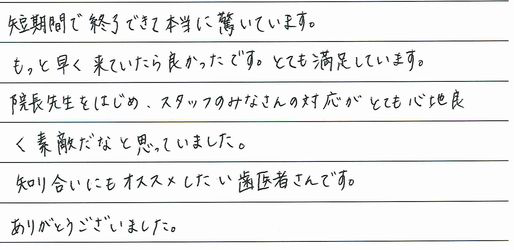 短期間で終了できて本当に驚いています。
もっと早く来ていたら良かったです。とても満足しています。
院長先生をはじめ、スタッフのみなさんの対応がとても心地良
く素敵だなと思っていました。
知り合いにもオススメしたい歯医者さんです。
ありがとうございました。